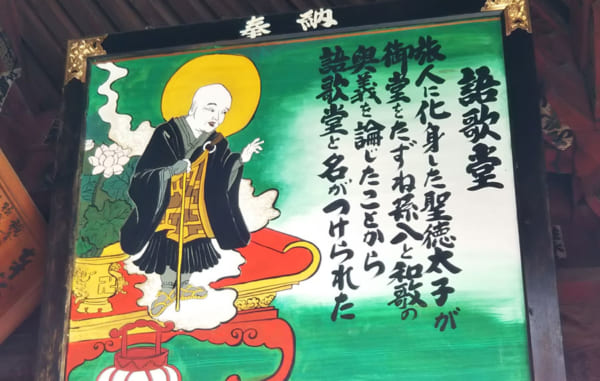 奉納
語歌堂
旅人に化身した聖徳太子が
御堂をたずね孫八と和歌の
奥義を論じたことから
語歌堂と名がつけられた